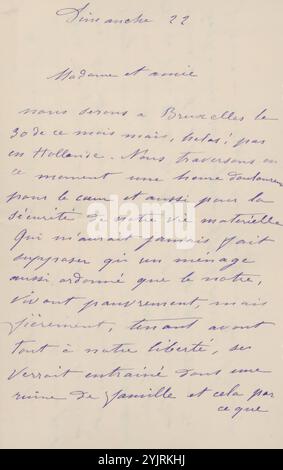 Dimanche 22
Madame et amie
nous serons a Bruxelles le
30 de ce mois mais, helas! pas
en Hollande. Nous traversons en
ce moment une heure douloureuse
pour le cœur et aussi pour la
sécurité de notre vie materielle
Qui m'aurait jamais fait
supposer qu'un ménage
aussi ordonné que le notre,
vivant pauvrement, mais
fièrement, tenant avant
tout à notre liberté, se
verrait entrainé dans une
ruine de famille et cela par
ce que
alamy
Image ID: 2YJRKHJ
www.alamy.com